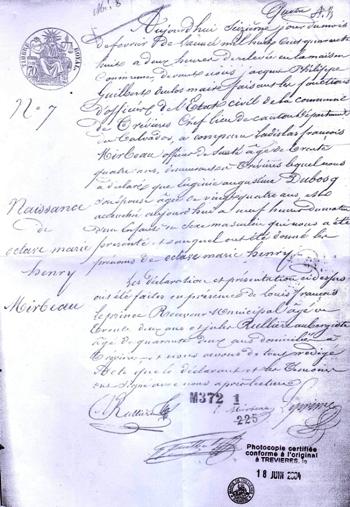 Aujourd'hui Seizieme jour du mois
de fevrier de l'an mil huit cent quarante
huit à deux heures de relevée en la maison
Commune, devant nous Jacques Philippe
Guilbert maire faisant les fonctions
d'officier de l'Etat civil de la commune
de Trevières Chef lieu de canton Départemt
du Calvados, a comparu Ladislas françois
Mirbeau officier de Santé âgé de trente
quatre ans, demeurant à Trévières lequel nous
a déclaré que Eugénie augustine Dubosq
son épouse âgée de vingt quatre ans est
accouchée aujourd'hui à neuf heures du matin
d'un Enfant du Sexe masculin qui nous a été
présenté et auquel ont été donné les
prénoms de octave marie henry.
Les déclaration et présentation ci dessus
ont été faites en présence de Louis françois
Leprince Receveur Municipal âgé de
trente deux ans et jules Rullier aubergiste
âgé de quarante deux ans domiciliés à
Trévières et nous avons de tout rédigé
acte que le déclarant et les temoins
ont Signé avec nous après lecture
N.º 7
Naissance
de
octave marie
henry
Mirbeau
TIMBRE ROYAL
Rullier
M372 1
Mirbeau
225
Leprince
Photocopie certifiée
conforme à l'original
à TREVIERES, le
18 JUIN 2004